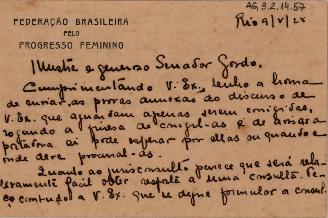 AG, 3.2.14.57
FEDERAÇÃO BRASILEIRA
PELO
PROGRESSO FEMININO
Rio 9/V/28
Illustre e generoso Senador Gordo,
Cumprimentando V. Ex., tenho a honra
de enviar as provas annexas do discurso de
V. Ex. que aguardam apenas serem corrigidas,
rogando a fineza de corrigil-as e de avisar a
portadora si pode esperar por ellas ou quando e
onde deve procural-as.
Quanto ao jurisconsulto parece que será rela-
tivamente facil obter resposta a uma consulta. Pe-
ço comtudo a V. Ex. que se digne formular a consul-